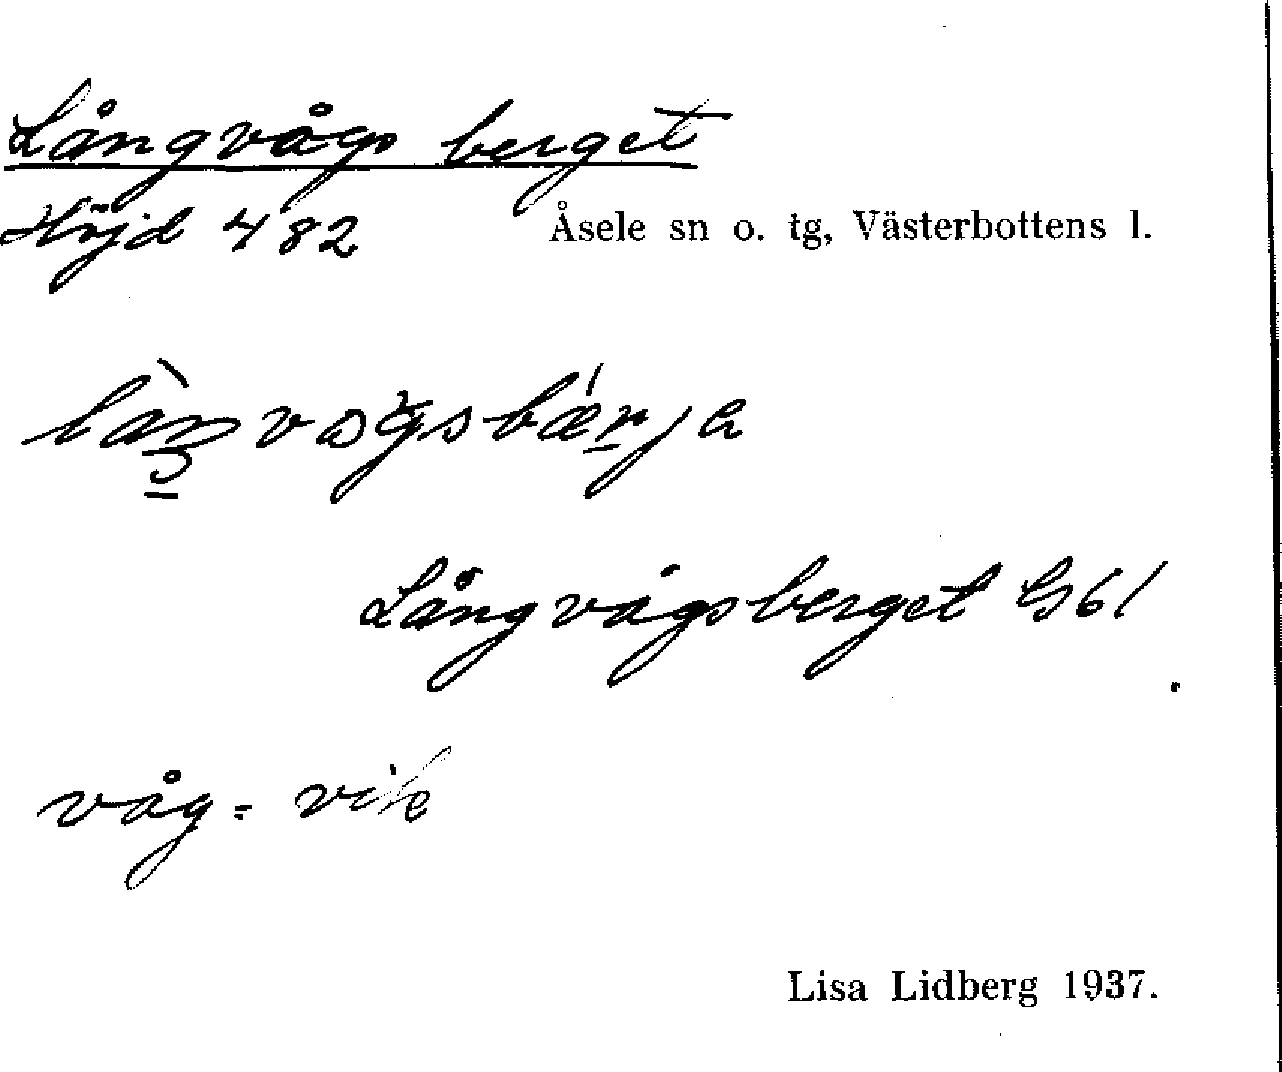 Långvågsberget
Höjd 482
Åsele sn o. tg, Västerbottens l.
Långvågsberget G61
våg = vik
Lisa Lidberg 1937.